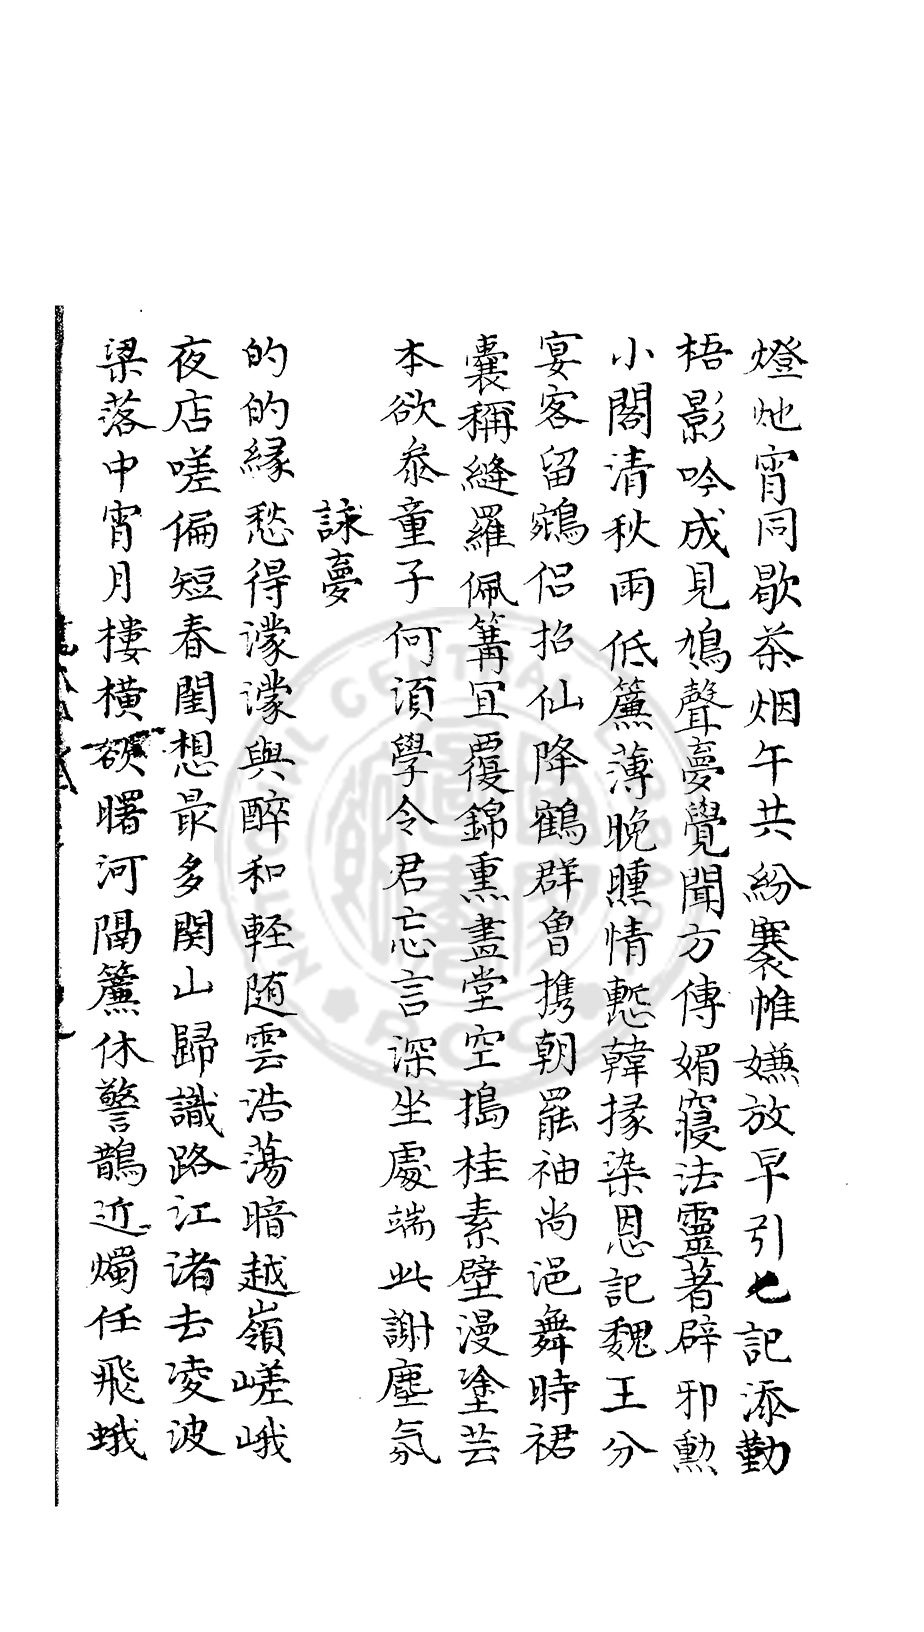 燈灺宵同歇茶烟午共紛褰帷嫌放早引匕記添勤
梧影吟成見鳩聲夢覺聞方傳媚寢法靈著辟邪勲
小閣清秋雨低簾薄晩曛情慙韓掾染恩記魏王分
宴客留鵷侣招仙降鶴群曽携朝罷袖尚浥舞時裙
囊稱縫羅佩篝宜覆錦熏畫堂空搗桂素壁漫塗芸
本欲叅童子何須學令君忘言深坐處端此謝塵氛
詠夢
的的縁愁得濛濛與醉和軽随雲浩蕩暗越嶺嵯峨
夜店嗟偏短春閨想最多関山歸識路江渚去凌波
梁落中宵月樓橫欲曙河隔簾休警鵲近燭任飛蛾